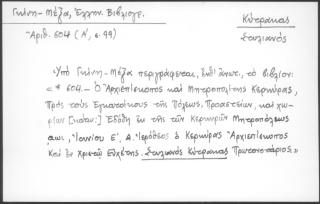 Γκίνη - Μέξα, Ἑλλην. Βιβλιογρ.
Ἀριθ. 604 (Α', σ. 99)
Κύτρακας
Στυλιανός
«Ὑπὸ Γκίνη - Μέξα περιγράφεται, ἔνθ' ἀνωτ., τὸ βιβλίον:
«* 604. - Ὁ Ἀρχιεπίσκοπος καὶ Μητροπολίτης Κερκύρας,
Πρὸς τοὺς Ἐγκατοίκους τῆς Πόλεως, Προαστείων, καὶ χω-
ρίων Ἐδόθη ἐκ τῆς τῶν Κερκυρῶν Μητροπόλεως
αωι, Ἰουνίου Ε'. Δ. Ἱερόθεος ὁ Κερκύρας Ἀρχιεπίσκοπος
Καὶ ἐν Χριστῷ Εὐχέτης. Στυλιανὸς Κύτρακας Πρωτονοτάριος.»»